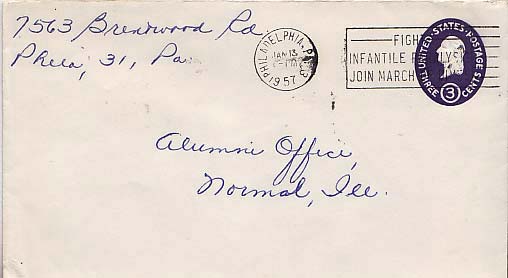 7563 Brentwood Rd,
Phila, 31, Pa.
PHILADELPHIA, PA.
JAN 13
1957
FIGHT
INFANTILE PARALYSIS
JOIN MARCH OF DIMES
UNITED·STATES·POSTAGE
THREE 3 CENTS
Alumni Office,
Normal, Ill.